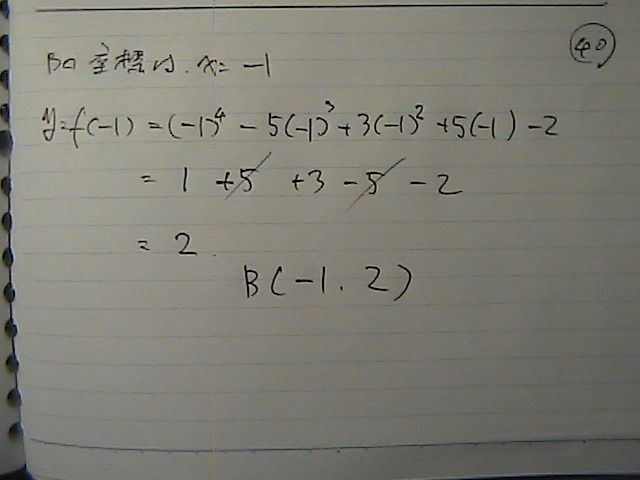 ㊵
Bの座標は、x = -1
y=f(-1) = (-1)^4 - 5(-1)^3 + 3(-1)^2 + 5(-1) - 2
= 1 +5 +3 -5 -2
= 2.
B(-1, 2)